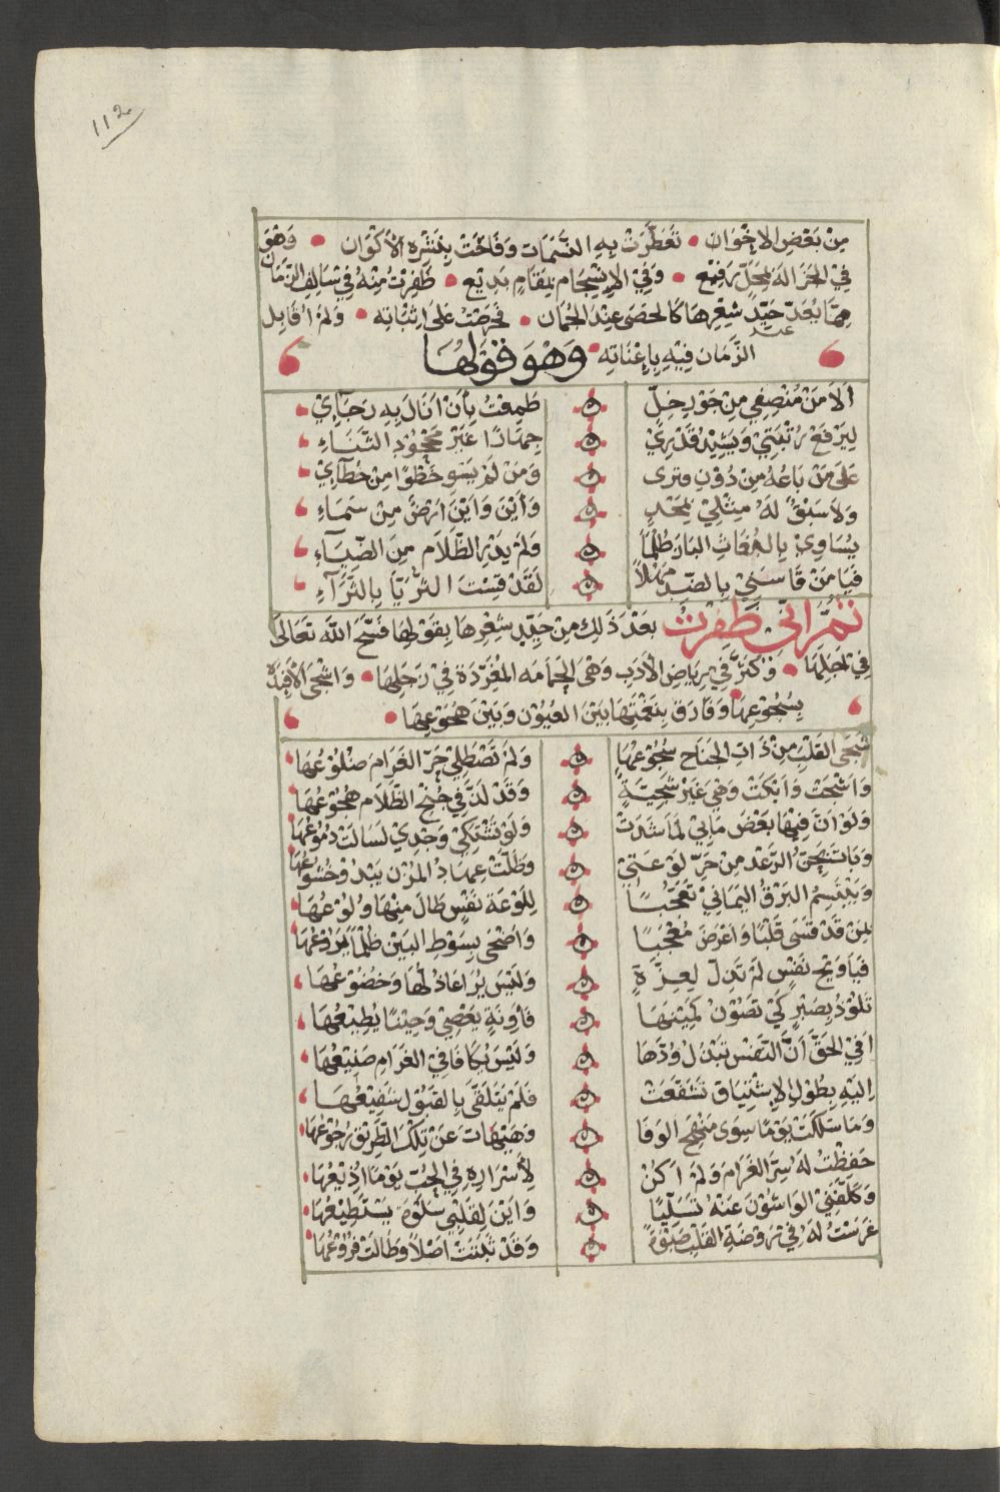 ١١٢
مِنْ بَعْضِ الاِخْوَانْ • تَعَطَّرَتْ بِهِ النَّسَمَات وَفَاحَتْ بِنَشْرِهِ الأَكْوَان • وَهْوَ
فِي الجَزَالَةَ بِمَحَلٍّ رَفِيْع • وَفِي الاِنْسِجَامِ بِمَقَامٍ بَدِيْع • ظَفِرْتُ مِنْهُ فِي سَالِفِ الزَّمَان
مِمَّا يُعَدّ جَيّد شِعْرِهَا كَالحَصَى عِنْدَ الجُمَان • فَحَرَصْتُ عَلَى اِثْبَاتِه • وَلَمْ اُقَابِل
الزَّمَان فِيْهِ بِاِعْنَاتِه • وَهْوَ قَوْلُهَا
اَلاَ مَنْ مُنْصِفِي مِنْ جَوْرِ خِلٍّ ۞ طَمِعْتُ بِأَنْ اَنَالَ بِهِ رَجَآئِيْ
لِيَرْفَعَ رُتْبَتِيْ وَيَشِيْدُ قَدْرِيْ ۞ جِهَارًا غَيْرَ مَجْحُوْدِ الثَّنَاءِ
عَلَى مَنْ بَاعُهُ مِنْ دُوْنِ فتري ۞ وَمَنْ لَمْ يَسْوِ خَطْوًا مِنْ خُطَآئِيْ
وَلاَ سَبْقٌ لَهُ مِثْلِيْ بِمَجْدٍ ۞ وَأَيْنَ وَاَيْنَ اَرْضٌ مِنْ سَمَاءِ
يُسَاوِيْ بِالبُغَاثِ البَازَ ظُلْمًا ۞ وَلَمْ يَدْرِ الظَّلاَم مِنَ الضِّيَآءِ
فَيَا مَنْ قَاسَنِيْ بِالضِّدِّ مَهْلاً ۞ لَقَدْ قِسْتَ الثُّرَيَّا بِالثَّرَآءِ
ثُمَّ اِنِّي ظَفِرْتُ بَعْدَ ذَلِكَ مِنْ جَيِّدِ شِعْرِهَا بِقَوْلِهَا فَسَّحَ اللّٰه تَعَالَى
فِي اَجَلِهَا • وَكَثَّرَ فِي رِيَاضِ الأَدَبِ وَهْيَ الحَمَامَه المُغَرِّدَة فِيْ زَجَلِهَا • وَاشْجَى الأَفْئِدَة
بِسُجُوْعِهَا وَفَارَقَ بِنَغْمَتِهَا بَيْنَ العُيُوْن وَبَيْنَ هُجُوْعِهَا •
شَجَى القَلْبَ مِنْ ذَاتِ الجَنَاحِ سُجُوْعُهَا ۞ وَلَمْ تَصْطَلِيْ حَرّ الغَرَام ضُلُوْعُهَا
وَاَشْجَتْ وَاَبْكَتْ وَهْيَ غَيْرُ شَجِيَّةٍ ۞ وَقَدْ لَذَّ فِيْ جُنْحِ الظَّلاَم هُجُوْعُهَا
وَلَوْ اَنَّ فِيْهَا بَعْضَ مَابِيْ لَمَا شَدَتْ ۞ وَلَوْ تَشْتَكِيْ وَجْدِيْ لَسَالَتْ دُمُوْعُهَا
وَبَاتَ يَحِنُّ الرَّعْد مِنْ حَرّ لَوْعَتِيْ ۞ وَظَلَّتْ عِهَادُ المُزْن يَبْدُو خُشُوْعُهَا
وَيَبْتَسِمُ البَرْقُ اليَمَانِيْ تَعَجُّبًا ۞ لِلَوْعَةِ نَفْسٍ طَالَ مِنْهَا وُلُوْعُهَا
بِمَنْ قَدْ قَسَى قَلْبًا وَاَعْرَضَ مُعْجَبًا ۞ وَاَضْحَى بِسَوْطِ البَيْن ظُلْمًا يَرُوْعُهَا
فَيَا وَيْحَ نَفْسٍ لَمْ تَذِلّ لِعِزَّةٍ ۞ وَلَيْسَ يُرَاعَا ذُلُّهَا وَخُضُوْعُهَا
تَلُوْذُ بِصَبْرٍ كَيْ تَصُوْنَ كَمِيْنَهَا ۞ فَآوِنَةٍ يَعْصِيْ وَحِيْنًا يُطِيْعُهَا
اَفِيْ الحَقِّ اَنَّ النَّفْسَ تَبْذُلُ وُدَّهَا ۞ وَلَيْسَ يُكَافَا فِي الغَرَامِ صَنِيْعُهَا
اِلَيْهِ بِطُوْلِ الاِشْتِيَاقِ تَشَفَّعَتْ ۞ فَلَمْ يُتَلَقَّى بِالقَبُوْلِ شَفِيْعُهَا
وَمَا سَلَكَتْ يَوْمًا سِوَى مَنْهَجِ الوَفَا ۞ وَهَيْهَاتَ عَنْ تِلْكَ الطَّرِيْقِ رُجُوْعُهَا
حَفِظْتُ لَهُ سِرَّ الغَرَامِ وَلَمْ اَكُنْ ۞ لأَسْرَارِهِ فِي الحُبّ يَوْمًا اُذِيْعُهَا
وَكَلَّفَنِيْ الوَاشُوْنَ عَنْهُ تَسَلِّيًا ۞ وَاَيْنَ لِقَلْبِيْ سَلْوَة يَسْتَطِيْعُهَا
غَرَسْتُ لَهُ فِي رَوْضَةِ القَلْبِ صَبْوَةً ۞ وَقَدْ ثَبَتَتْ اَصْلاً وَطَالَتْ فُرُوْعُهَا